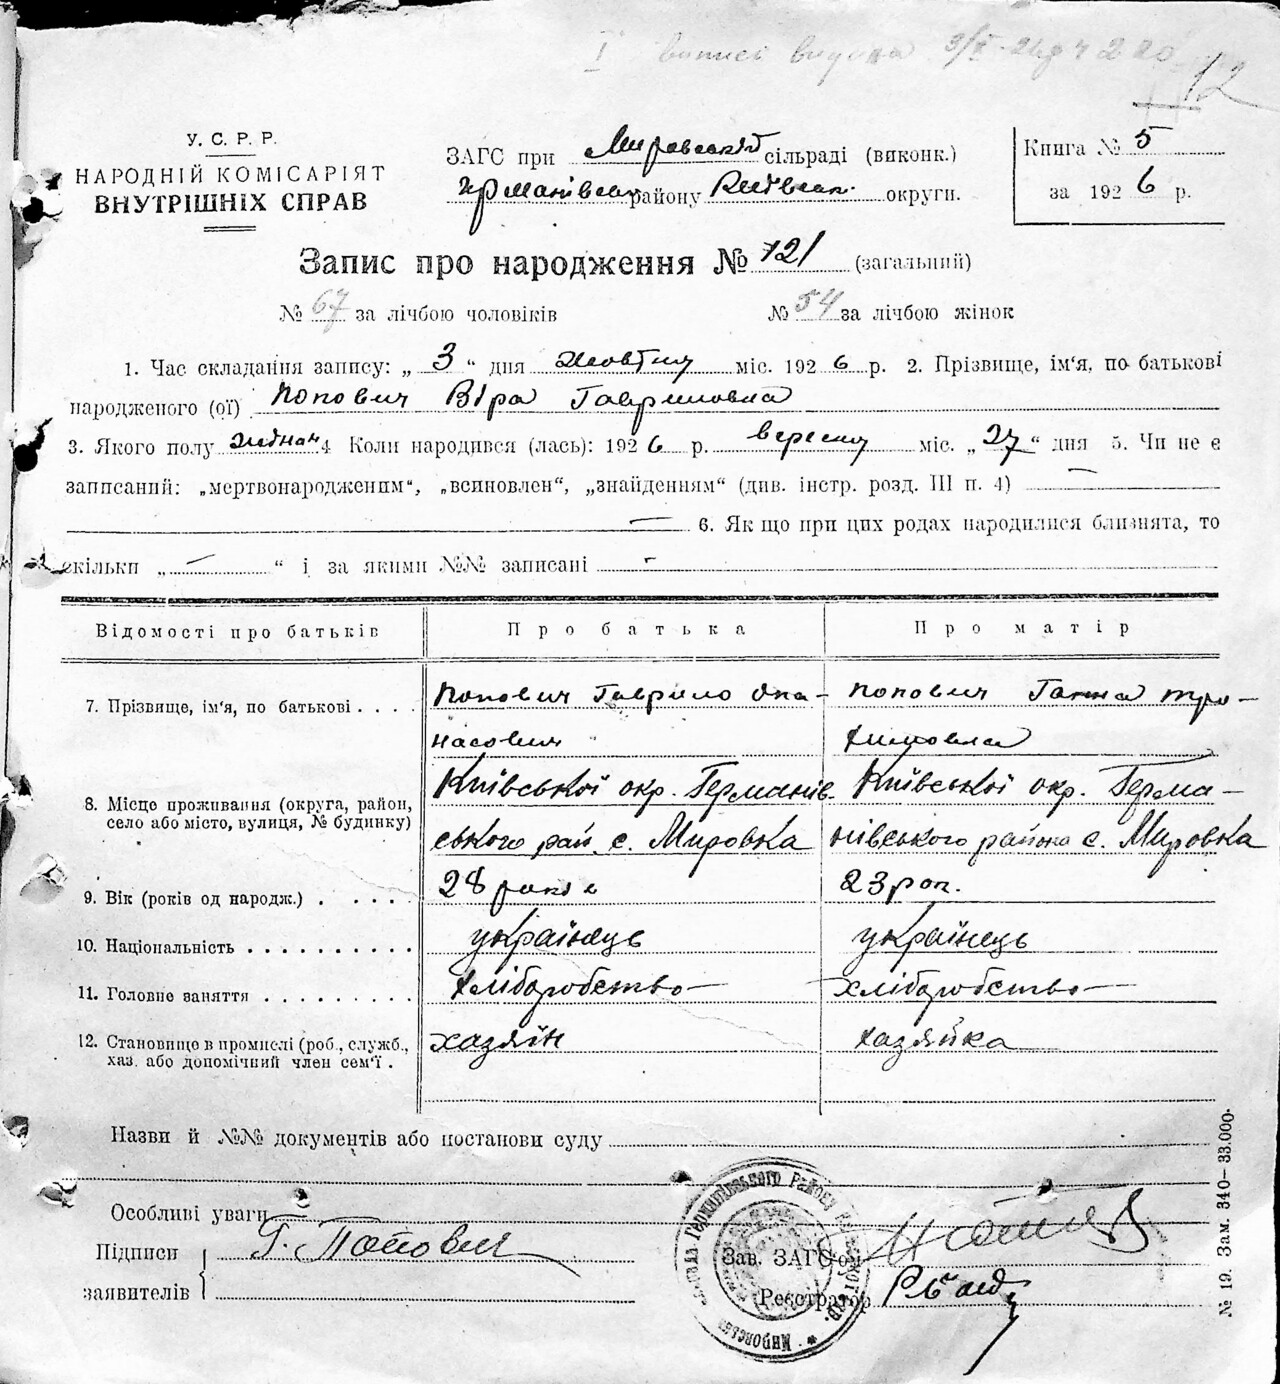 12
У. С. Р. Р.
НАРОДНІЙ КОМІСАРІЯТ
ВНУТРІШНІХ СПРАВ
ЗАГС при Мировській сільраді (виконк.)
району округи.
Книга № 5
за 1926 р.
Запис про народження № 121 (загальний)
№ 67 за лічбою чоловіків № 54 за лічбою жінок
1. Час складання запису: „ 3 “ дня жовтня міс. 1926 р. 2. Прізвище, ім'я, по батькові
народженого (ої) Попович Віра Гавриловна
3. Якого полу 4 Коли народився (лась): 1926 р. вересня міс. „ 27 “ дня 5. Чи не є
записаний: „мертвонародженим“, „всиновлен“, „знайденням“ (див. інстр. розд. III п. 4) —
— 6. Як що при цих родах народилися близнята, то
скільки „ — “ і за якими №№ записані -
Відомості про батьків Про батька Про матір
7. Прізвище, ім'я, по батькові . . . . Попович Гаврило Опа- Попович Ганна Тро-
насович химовна
8. Місце проживання (округа, район, село або місто, вулиця, № будинку) Київської окр. Германів- Київської окр. Герма-
ського рай. с. Мировка нівського района с. Мировка
9. Вік (років од народж.) . . . . . 28 років 23 рок.
10. Національність . . . . . . . . . . українець українець
11. Головне заняття . . . . . . . . . хліборобство хліборобство
12. Становище в промислі (роб., служб., хаз. або допомічний член сем'ї . хазяїн хазяйка
Назви й №№ документів або постанови суду
Особливі уваги
Підписи
заявителів
Г. Попович
Зав. ЗАГС'ом
Реєстратор
№ 19. Зам. 340—33.000.